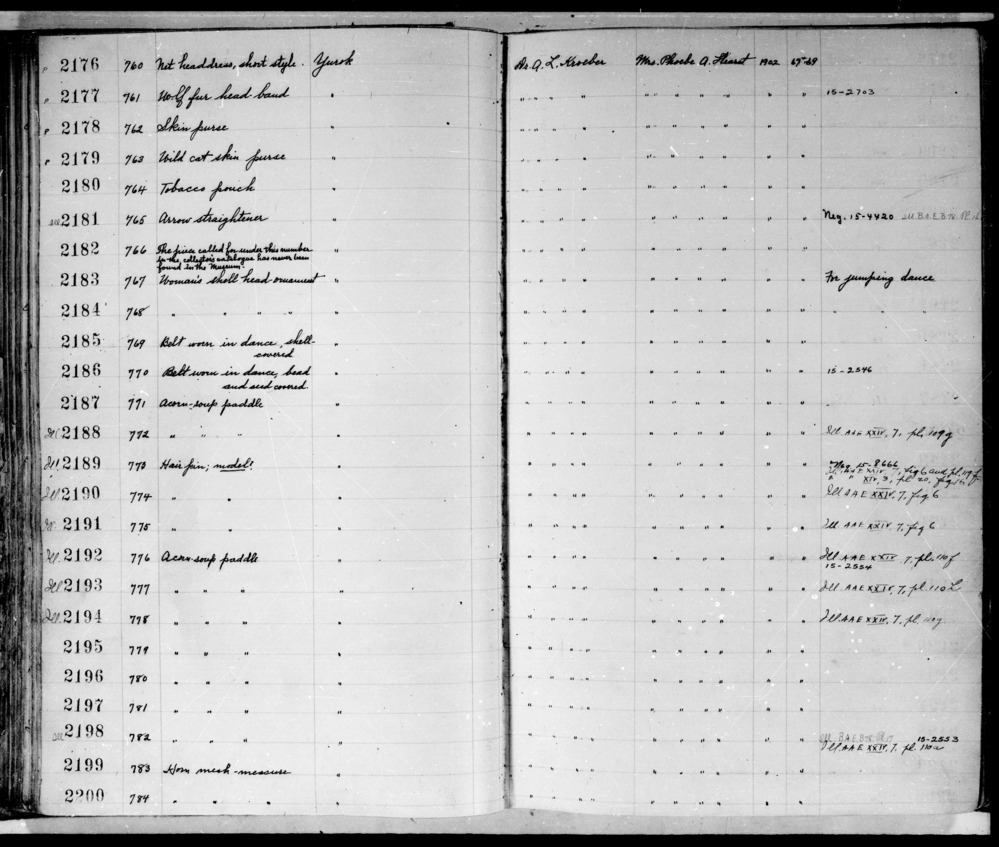 2176 760 Net headdress, short style. Yurok Dr. A. L. Kroeber Mrs. Phoebe A. Hearst 1902 67-69
2177 761 Wolf fur head band " " " " " " " " " " " 15-2703
2178 762 Skin purse " " " " " " " " " " "
2179 763 Wild cat skin purse " " " " " " " " " " "
2180 764 Tobacco pouch " " " " " " " " " " "
2181 765 Arrow straightener " " " " " " " " " " " Neg. 15-4420 Ill. B.A.E. B 78 Pl.
2182 766 The piece called for under this number " " " " " " " " " " "
in the collector's catalogue has never been
found in the Museum.
2183 767 Woman's shell head ornament " " " " " " " " " " " For jumping dance
2184 768 " " " " " " " " " " " " " " " " " "
2185 769 Belt worn in dance, shell- " " " " " " " " " " "
covered
2186 770 Belt worn in dance, bead " " " " " " " " " " " 15-2546
and seed covered
2187 771 Acorn-soup paddle " " " " " " " " " " "
Ill. 2188 772 " " " " " " " " " " " " " " Ill. AAE XXIV, 7, pl. 109g
Ill. 2189 773 Hair pin; model? " " " " " " " " " " " Neg. 15-8666
Ill. AAE XXIV, 7, fig 6 and pl. 119f
" " XIV, 3, pl 20, fig
Ill. 2190 774 " " " " " " " " " " " " " Ill AAE XXIV, 7, fig. 6
Ill. 2191 775 " " " " " " " " " " " " " Ill. AAE XXIV, 7, fig 6
Ill. 2192 776 Acorn-soup paddle " " " " " " " " " " " Ill AAE XXIV, 7, pl. 110f
15-2554
Ill 2193 777 " " " " " " " " " " " " " " Ill. AAE XXIV, 7, pl. 110
Ill. 2194 778 " " " " " " " " " " " " " " Ill. AAE XXIV, 7, pl.
2195 779 " " " " " " " " " " " " " "
2196 780 " " " " " " " " " " " " " "
2197 781 " " " " " " " " " " " " " "
Ill 2198 782 " " " " " " " " " " " " " " Ill. B.A.E. B 78 15-2553
Ill. AAE XXIV, 7, pl. 110a
2199 783 Horn mesh-measure " " " " " " " " " " "
2200 784 " " " " " " " " " " " " " "